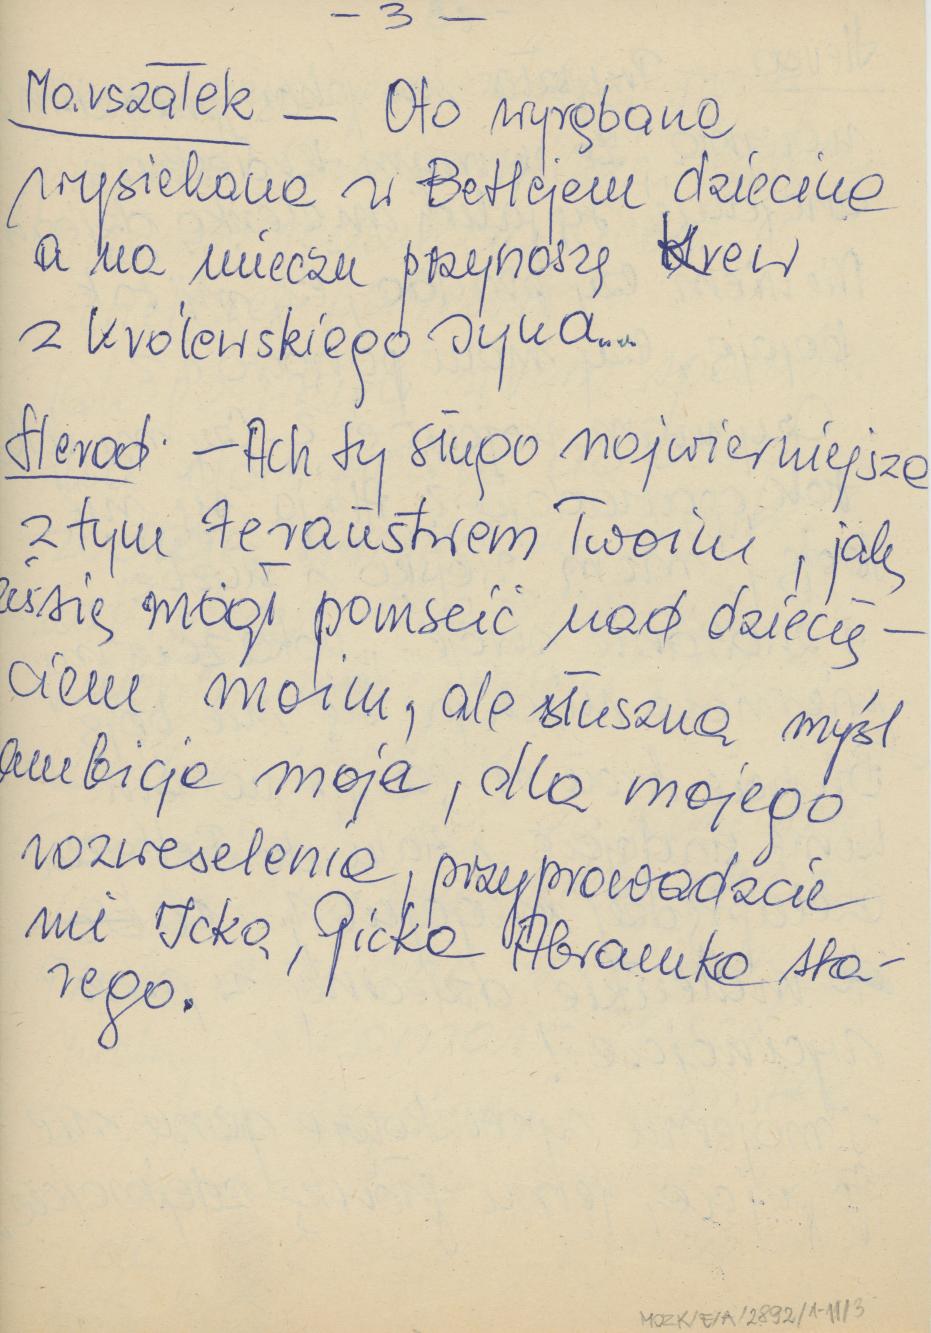 – 3 –
Marszałek – Oto wyrąbana
wysiekana w Betlejem dziecina
a na mieczu przynoszę Krew
z królewskiego syna...
Herod – Ach ty sługo najwierniejsza
z tym żeraństwem Twoim, jak
żeś się mógł pomścić nad dziecię–
ciem moim, ale słuszna myśl
ambicja moja, dla mojego
rozweselenia, przyprowadzcie
mi Icka, Picka Abramka sta–
rego.
MOZK/E/A/2892/1-11/3